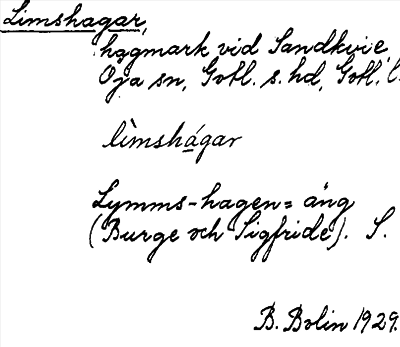 Limshagar,
hagmark vid Sandkvie,
Öja sn, Gotl. s. hd, Gotl. l.
lìmshágar
Lymms-hagen = äng
(Burge och Sigfride). S.
B. Bolin 1929.